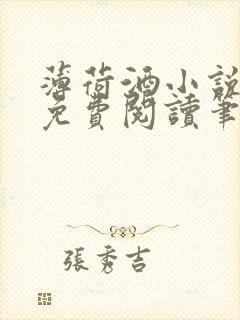 薄荷酒小說
免費閱讀筆
張秀吉